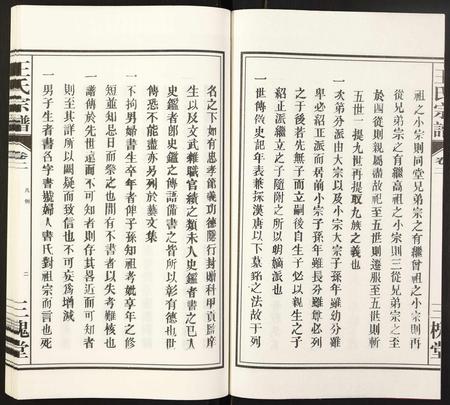 王氏宗譜
卷二
三槐堂
祖之小宗則同堂兄弟宗之有繼曾祖之小宗則再
從兄弟宗之有繼高祖之小宗則三從兄弟宗之至
於四從則親屬盡故祀至五世則遷服至五世則斬
五世一提九世再提取九族之義也
一次第分派由大宗以及小宗大宗子孫年雖幼分雖
卑必紹正派而居前小宗子孫年雖長分雖尊必列
之于後若先無子而立嗣後自生子必以親生之子
紹正派繼立之子隨附之所以明嫡派也
一世傳做史記年表兼採漢唐以下墓銘之法故于列
名之下如有忠孝節義功德隱行封贈科甲貢監庠
生以及文武雜職官績之類未入史鑑者書之已入
史鑑者卽史鑑之傳語備書之皆所以彰有德也世
傳恐不能盡亦另列於藝文集
一不拘男婦書生卒年者俾子孫知祖考妣享年之修
短並知忌日而祭之也間有不書者以失考難核也
一譜傳於先世遠而不可知者則存其畧近而可知者
則至其詳所以闕疑而致信也不可妄爲增減
一男子生者書名字書號婦人書氏對祖宗而言也死
王氏宗譜
卷二
凡例
二
三槐堂